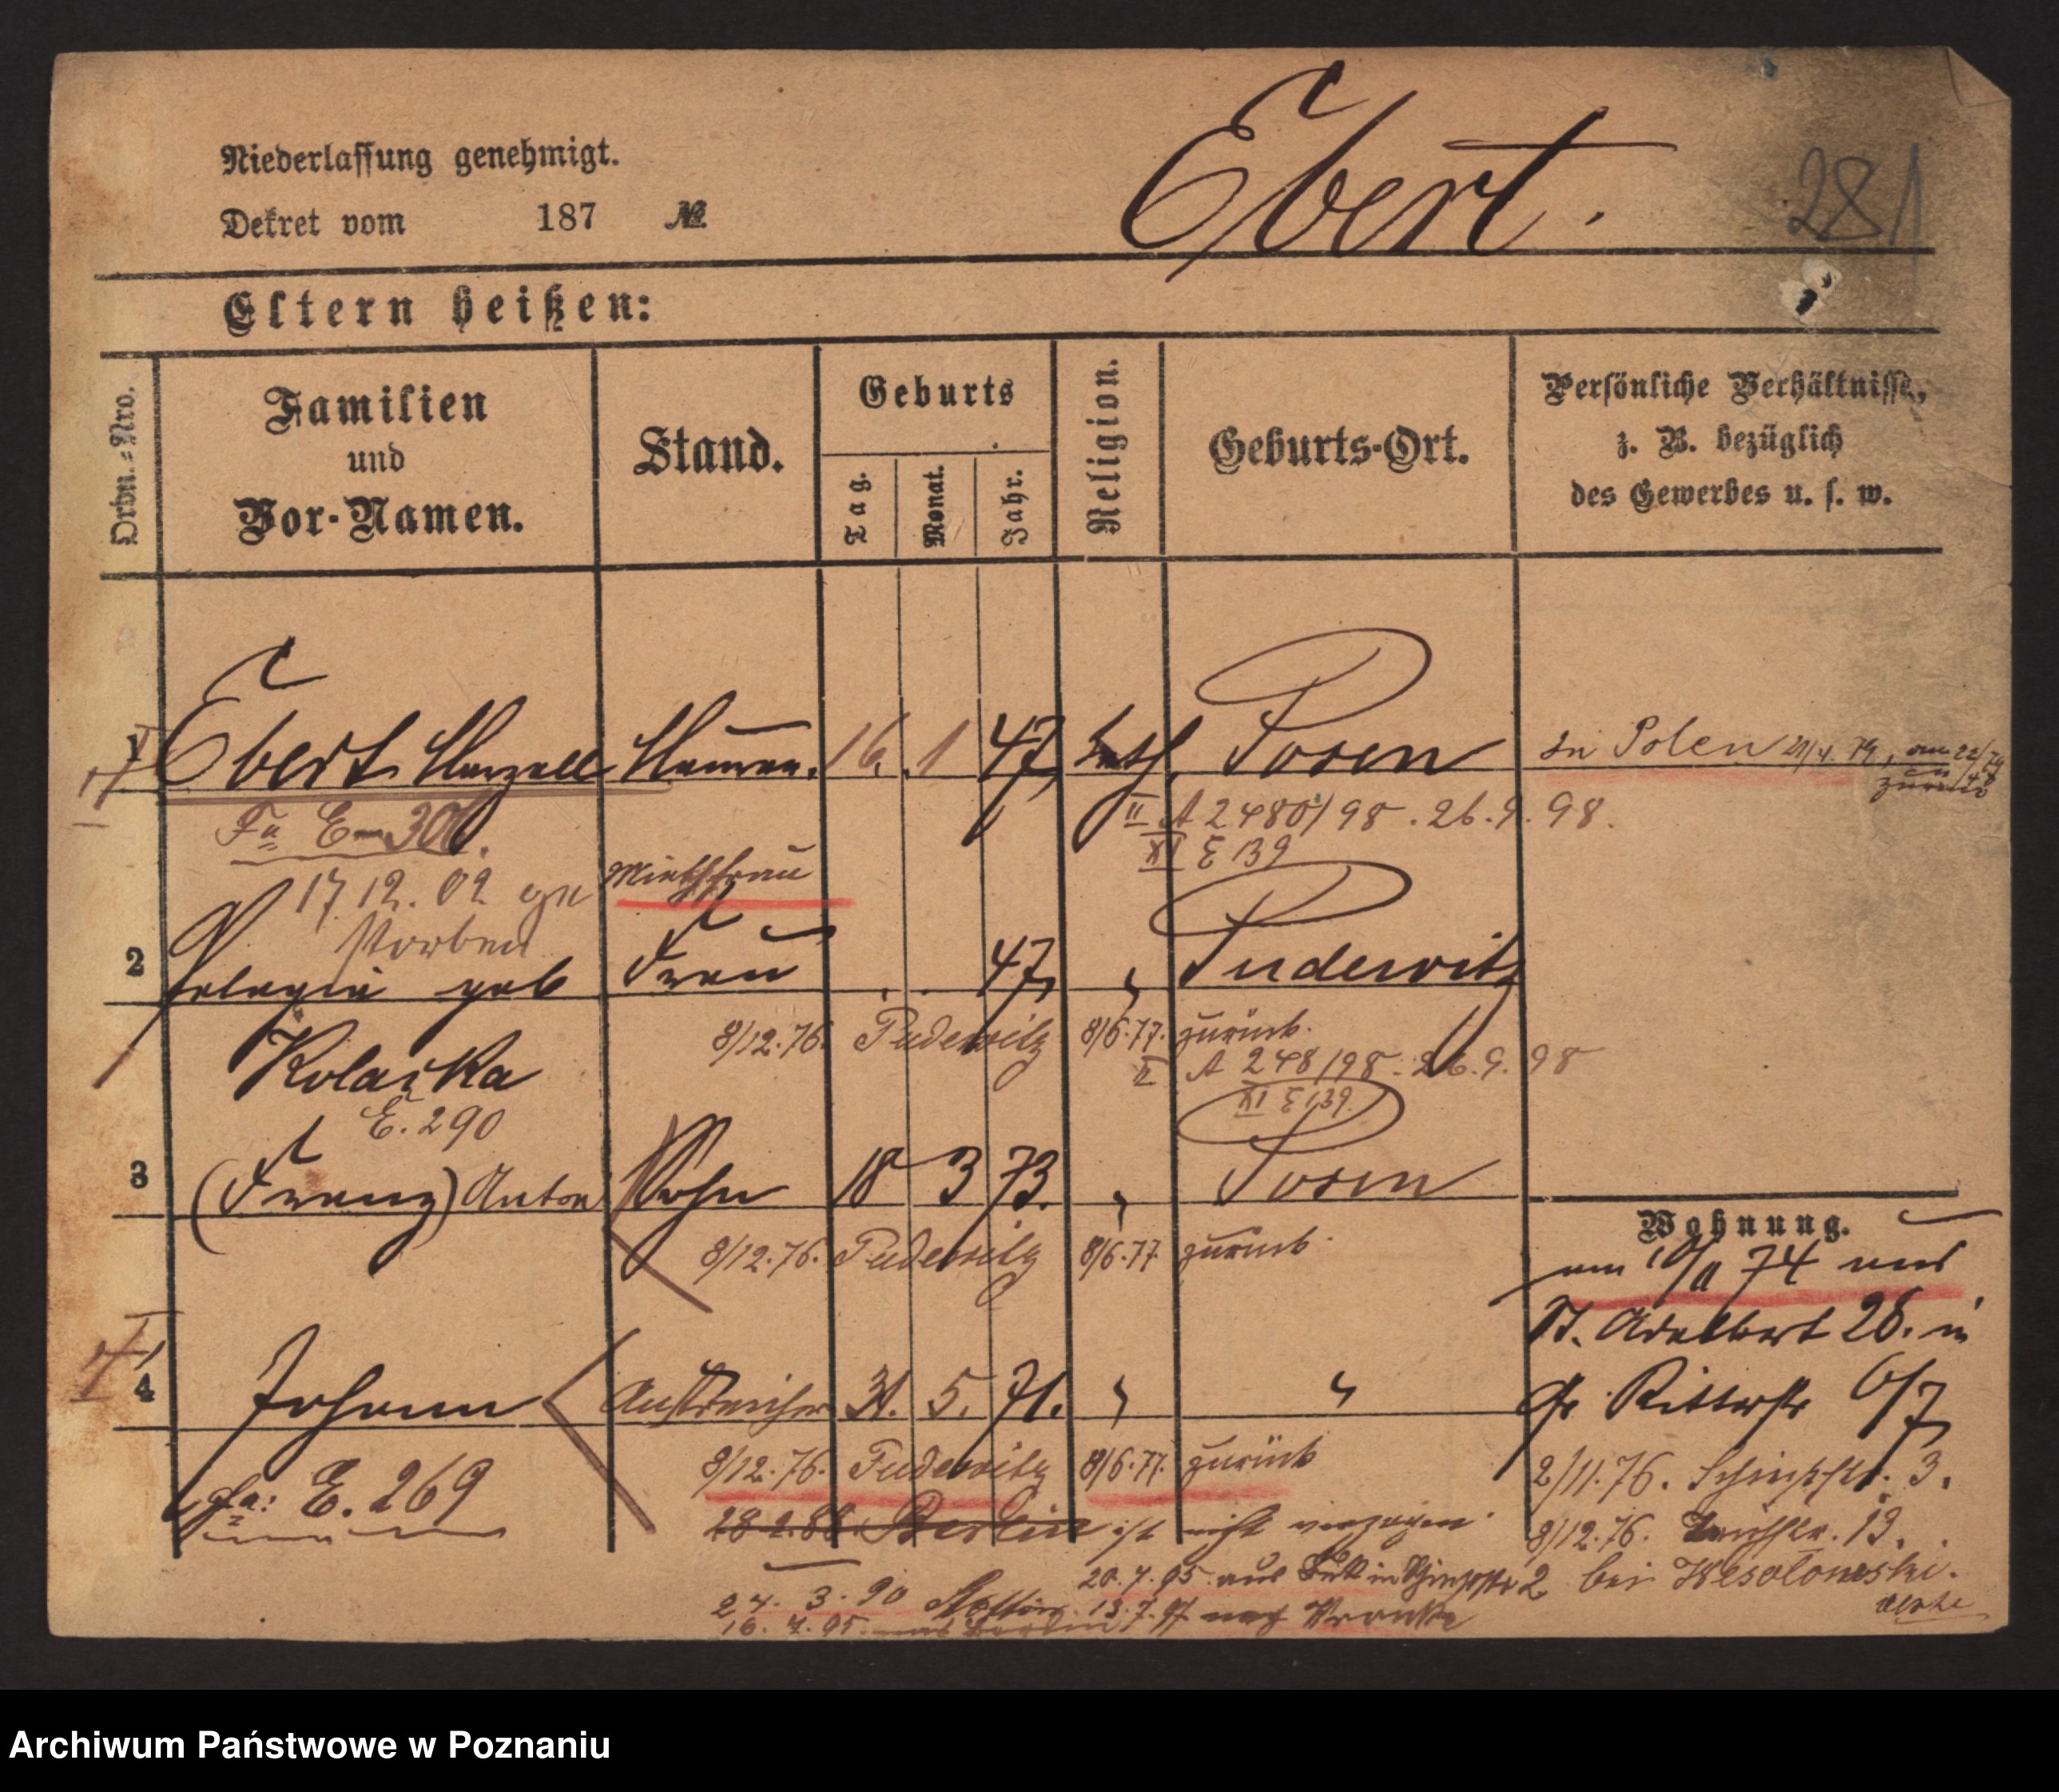 Niederlassung genehmigt.
Dekret vom 187 №
Ebert.
281
Eltern heißen:
Ordn.-Nro.
Familien
und
Vor-Namen.
Stand.
Geburts
Tag.
Monat.
Jahr.
Religion.
Geburts-Ort.
Persönliche Verhältnisse,
z. B. bezüglich
des Gewerbes u. s. w.
1 Ebert Marzell Maurer. 16. 1 47, kath. Posen in Polen
zurück
Fa E-306.
II A 2480/98. 26.9.98.
XI E 139
17 12. 02
Miethsfrau
2 Pelagia geb Frau 47, " Pudewitz
8/12.76. Pudewitz 8/6.77. zurück.
Kolaska
II A 248/98. 26.9.98
XI E 139.
E. 290
3 (Franz) Anton Sohn 18 3 73. " Posen
8/12.76. Pudewitz 8/6.77 zurück.
Wohnung.
am 10/11 74 aus
St. Adalbert 28. in
4 Johann Anstreicher 31. 5. 71. " "
Gr Ritterstr 6/7
8/12.76. Pudewitz 8/6.77. zurück
2/11.76. Schießstr. 3.
E. 269
28 2.88. Berlin ist nicht verzogen.
8/12.76. 19.
20.7.95. aus in Schießstr 2 bei Wesolowski.
24. 3. 90 Stettin. 13.7.97 nach Wronke
16. 7. 95. Berlin
Archiwum Państwowe w Poznaniu